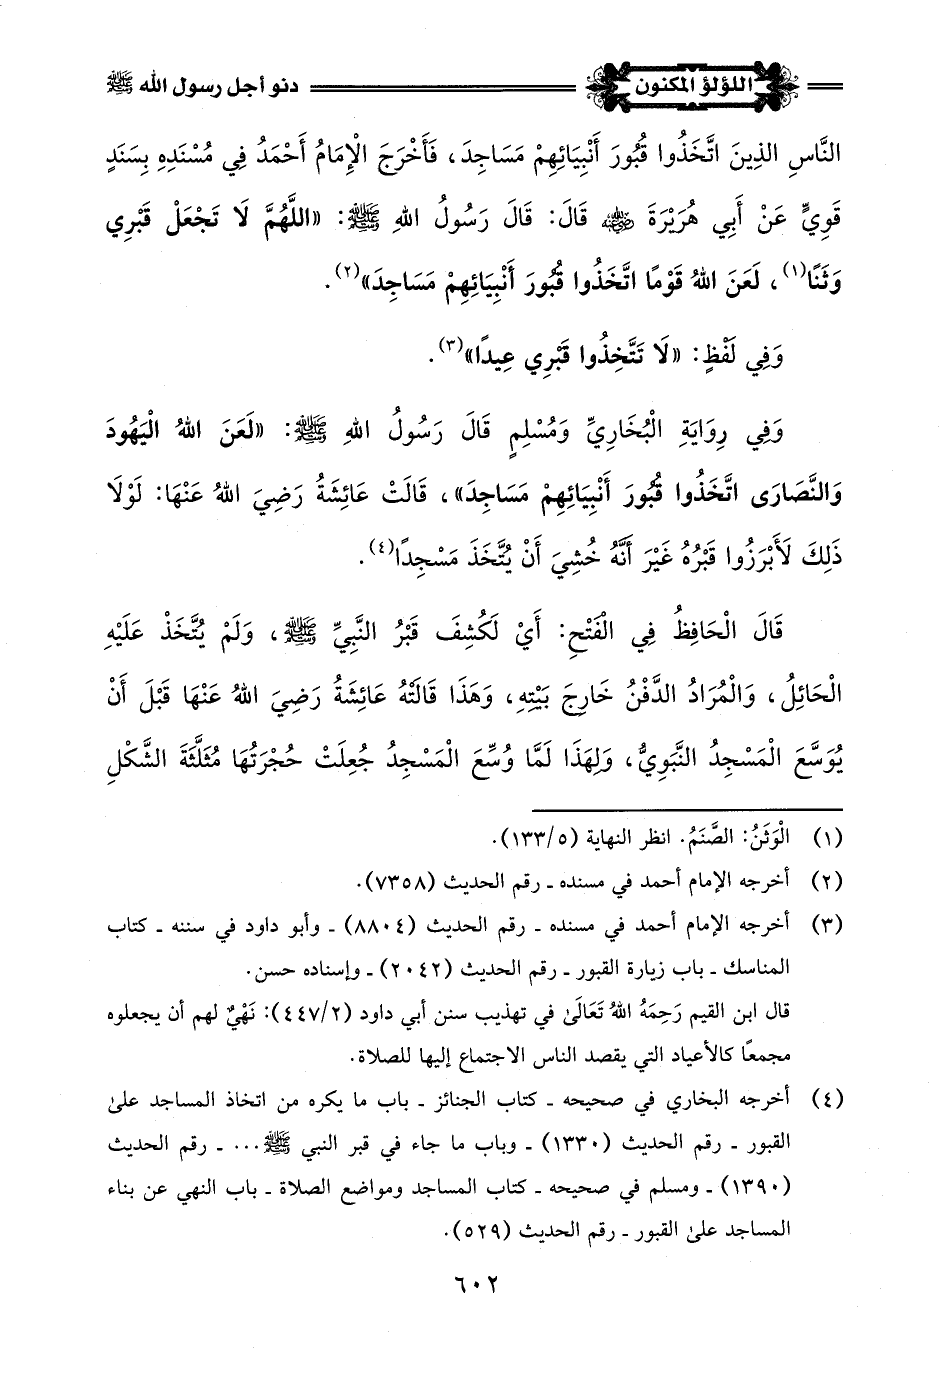 اللؤلؤ المكنون
دنو أجل رسول الله ﷺ
النَّاسِ الذِينَ اتَّخَذُوا قُبُورَ أَنْبِيَائِهِمْ مَسَاجِدَ، فَأَخْرَجَ الْإِمَامُ أَحْمَدُ فِي مُسْنَدِهِ بِسَنَدٍ
قَوِيٍّ عَنْ أَبِي هُرَيْرَةَ رضي الله عنه قَالَ: قَالَ رَسُولُ اللهِ ﷺ: «اللَّهُمَّ لَا تَجْعَلْ قَبْرِي
وَثَنًا(١)، لَعَنَ اللهُ قَوْمًا اتَّخَذُوا قُبُورَ أَنْبِيَائِهِمْ مَسَاجِدَ»(٢).
وَفِي لَفْظٍ: «لَا تَتَّخِذُوا قَبْرِي عِيدًا»(٣).
وَفِي رِوَايَةِ الْبُخَارِيِّ وَمُسْلِمٍ قَالَ رَسُولُ اللهِ ﷺ: «لَعَنَ اللهُ الْيَهُودَ
وَالنَّصَارَى اتَّخَذُوا قُبُورَ أَنْبِيَائِهِمْ مَسَاجِدَ»، قَالَتْ عَائِشَةُ رَضِيَ اللهُ عَنْهَا: لَوْلَا
ذَلِكَ لَأَبْرَزُوا قَبْرُهُ غَيْرَ أَنَّهُ خُشِيَ أَنْ يُتَّخَذَ مَسْجِدًا(٤).
قَالَ الْحَافِظُ فِي الْفَتْحِ: أَيْ لَكُشِفَ قَبْرُ النَّبِيِّ ﷺ، وَلَمْ يُتَّخَذْ عَلَيْهِ
الْحَائِلُ، وَالْمُرَادُ الدَّفْنُ خَارِجَ بَيْتِهِ، وَهَذَا قَالَتْهُ عَائِشَةُ رَضِيَ اللهُ عَنْهَا قَبْلَ أَنْ
يُوَسَّعَ الْمَسْجِدُ النَّبَوِيُّ، وَلِهَذَا لَمَّا وُسِّعَ الْمَسْجِدُ جُعِلَتْ حُجْرَتُهَا مُثَلَّثَةَ الشَّكْلِ
(١) الْوَثَنُ: الصَّنَمُ. انظر النهاية (١٣٣/٥).
(٢) أخرجه الإمام أحمد في مسنده ـ رقم الحديث (٧٣٥٨).
(٣) أخرجه الإمام أحمد في مسنده ـ رقم الحديث (٨٨٠٤) ـ وأبو داود في سننه ـ كتاب
المناسك ـ باب زيارة القبور ـ رقم الحديث (٢٠٤٢) ـ وإسناده حسن.
قال ابن القيم رَحِمَهُ اللهُ تَعَالَىٰ في تهذيب سنن أبي داود (٤٤٧/٢): نَهْيٌ لهم أن يجعلوه
مجمعًا كالأعياد التي يقصد الناس الاجتماع إليها للصلاة.
(٤) أخرجه البخاري في صحيحه ـ كتاب الجنائز ـ باب ما يكره من اتخاذ المساجد علىٰ
القبور ـ رقم الحديث (١٣٣٠) ـ وباب ما جاء في قبر النبي ﷺ... ـ رقم الحديث
(١٣٩٠) ـ ومسلم في صحيحه ـ كتاب المساجد ومواضع الصلاة ـ باب النهي عن بناء
المساجد علىٰ القبور ـ رقم الحديث (٥٢٩).
٦٠٢